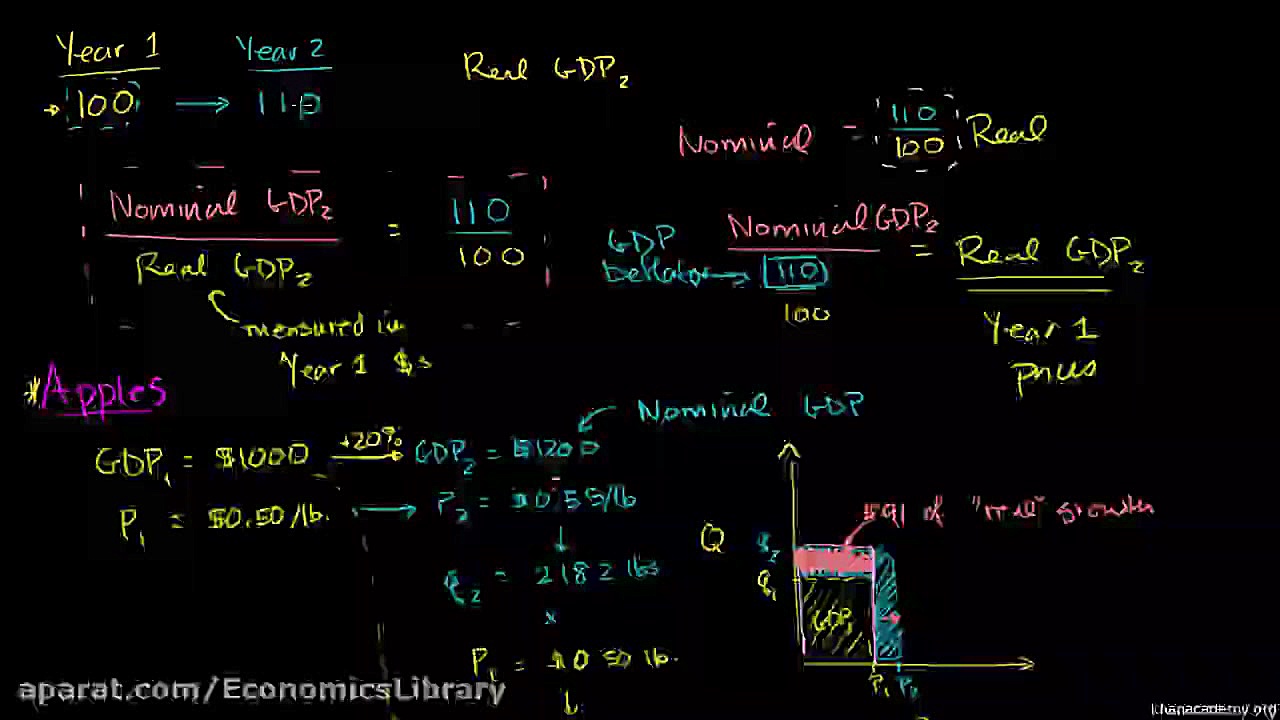 Year 1 Year 2
100 → 110
Real GDP₂
Nominal = 110/100 Real
Nominal GDP₂ / Real GDP₂ = 110 / 100
measured in
Year 1 $s
GDP
Deflator → Nominal GDP₂ / 110 = Real GDP₂
100
Year 1
prices
*Apples
Nominal GDP
GDP₁ = $1000 +20% → GDP₂ = $1200
P₁ = $0.50/lb. → P₂ = $0.55/lb
q₂ = 2182 lbs
x
P₁ = $0.50 lb.
$91 of "real" growth
Q
q₂
q₁
GDP₁
P₁ P₂
aparat.com/EconomicsLibrary
khanacademy.org